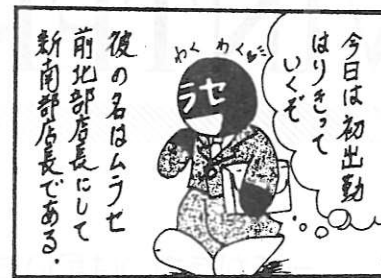 今日は初出勤
はりきって
いくぞ
わく わく
ラセ
彼の名はムラセ
前北部店長にして
新南部店長である.